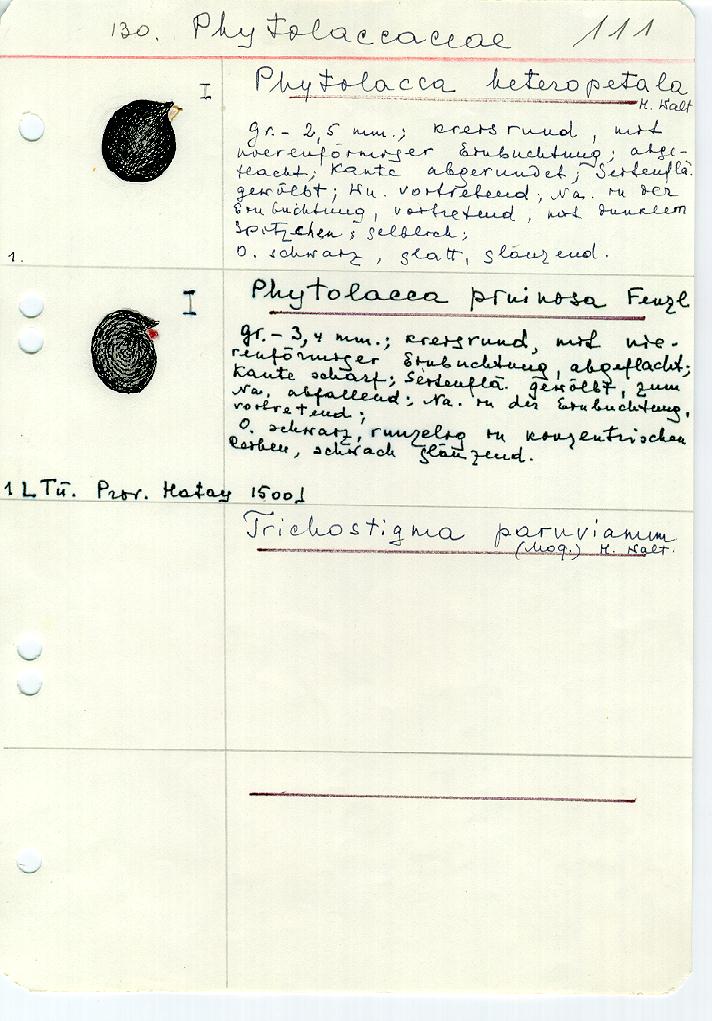 130. Phytolaccaceae 111
I
Phytolacca heteropetala
H. Walt
gr.- 2,5 mm.; kreisrund, mit
nierenförmiger Einbuchtung; abge-
flacht; Kante abgerundet; Seitenflä.
gewölbt; Wu. vortretend; Na. in der
Einbuchtung, vortretend, mit dunklem
Spitzchen; gelblich;
O. schwarz, glatt, glänzend.
1.
I
Phytolacca pruinosa Fenzl
gr.- 3,4 mm.; kreisrund, mit nie-
renförmiger Einbuchtung, abgeflacht;
Kante scharf; Seitenflä. gewölbt, zum
Na. abfallend; Na. in der Einbuchtung,
vortretend;
O. schwarz, runzelig in konzentrischen
Reihen, schwach glänzend.
1 L Tü. Prov. Hatay 1500
Trichostigma paruvianum
(Moq.) H. Walt.